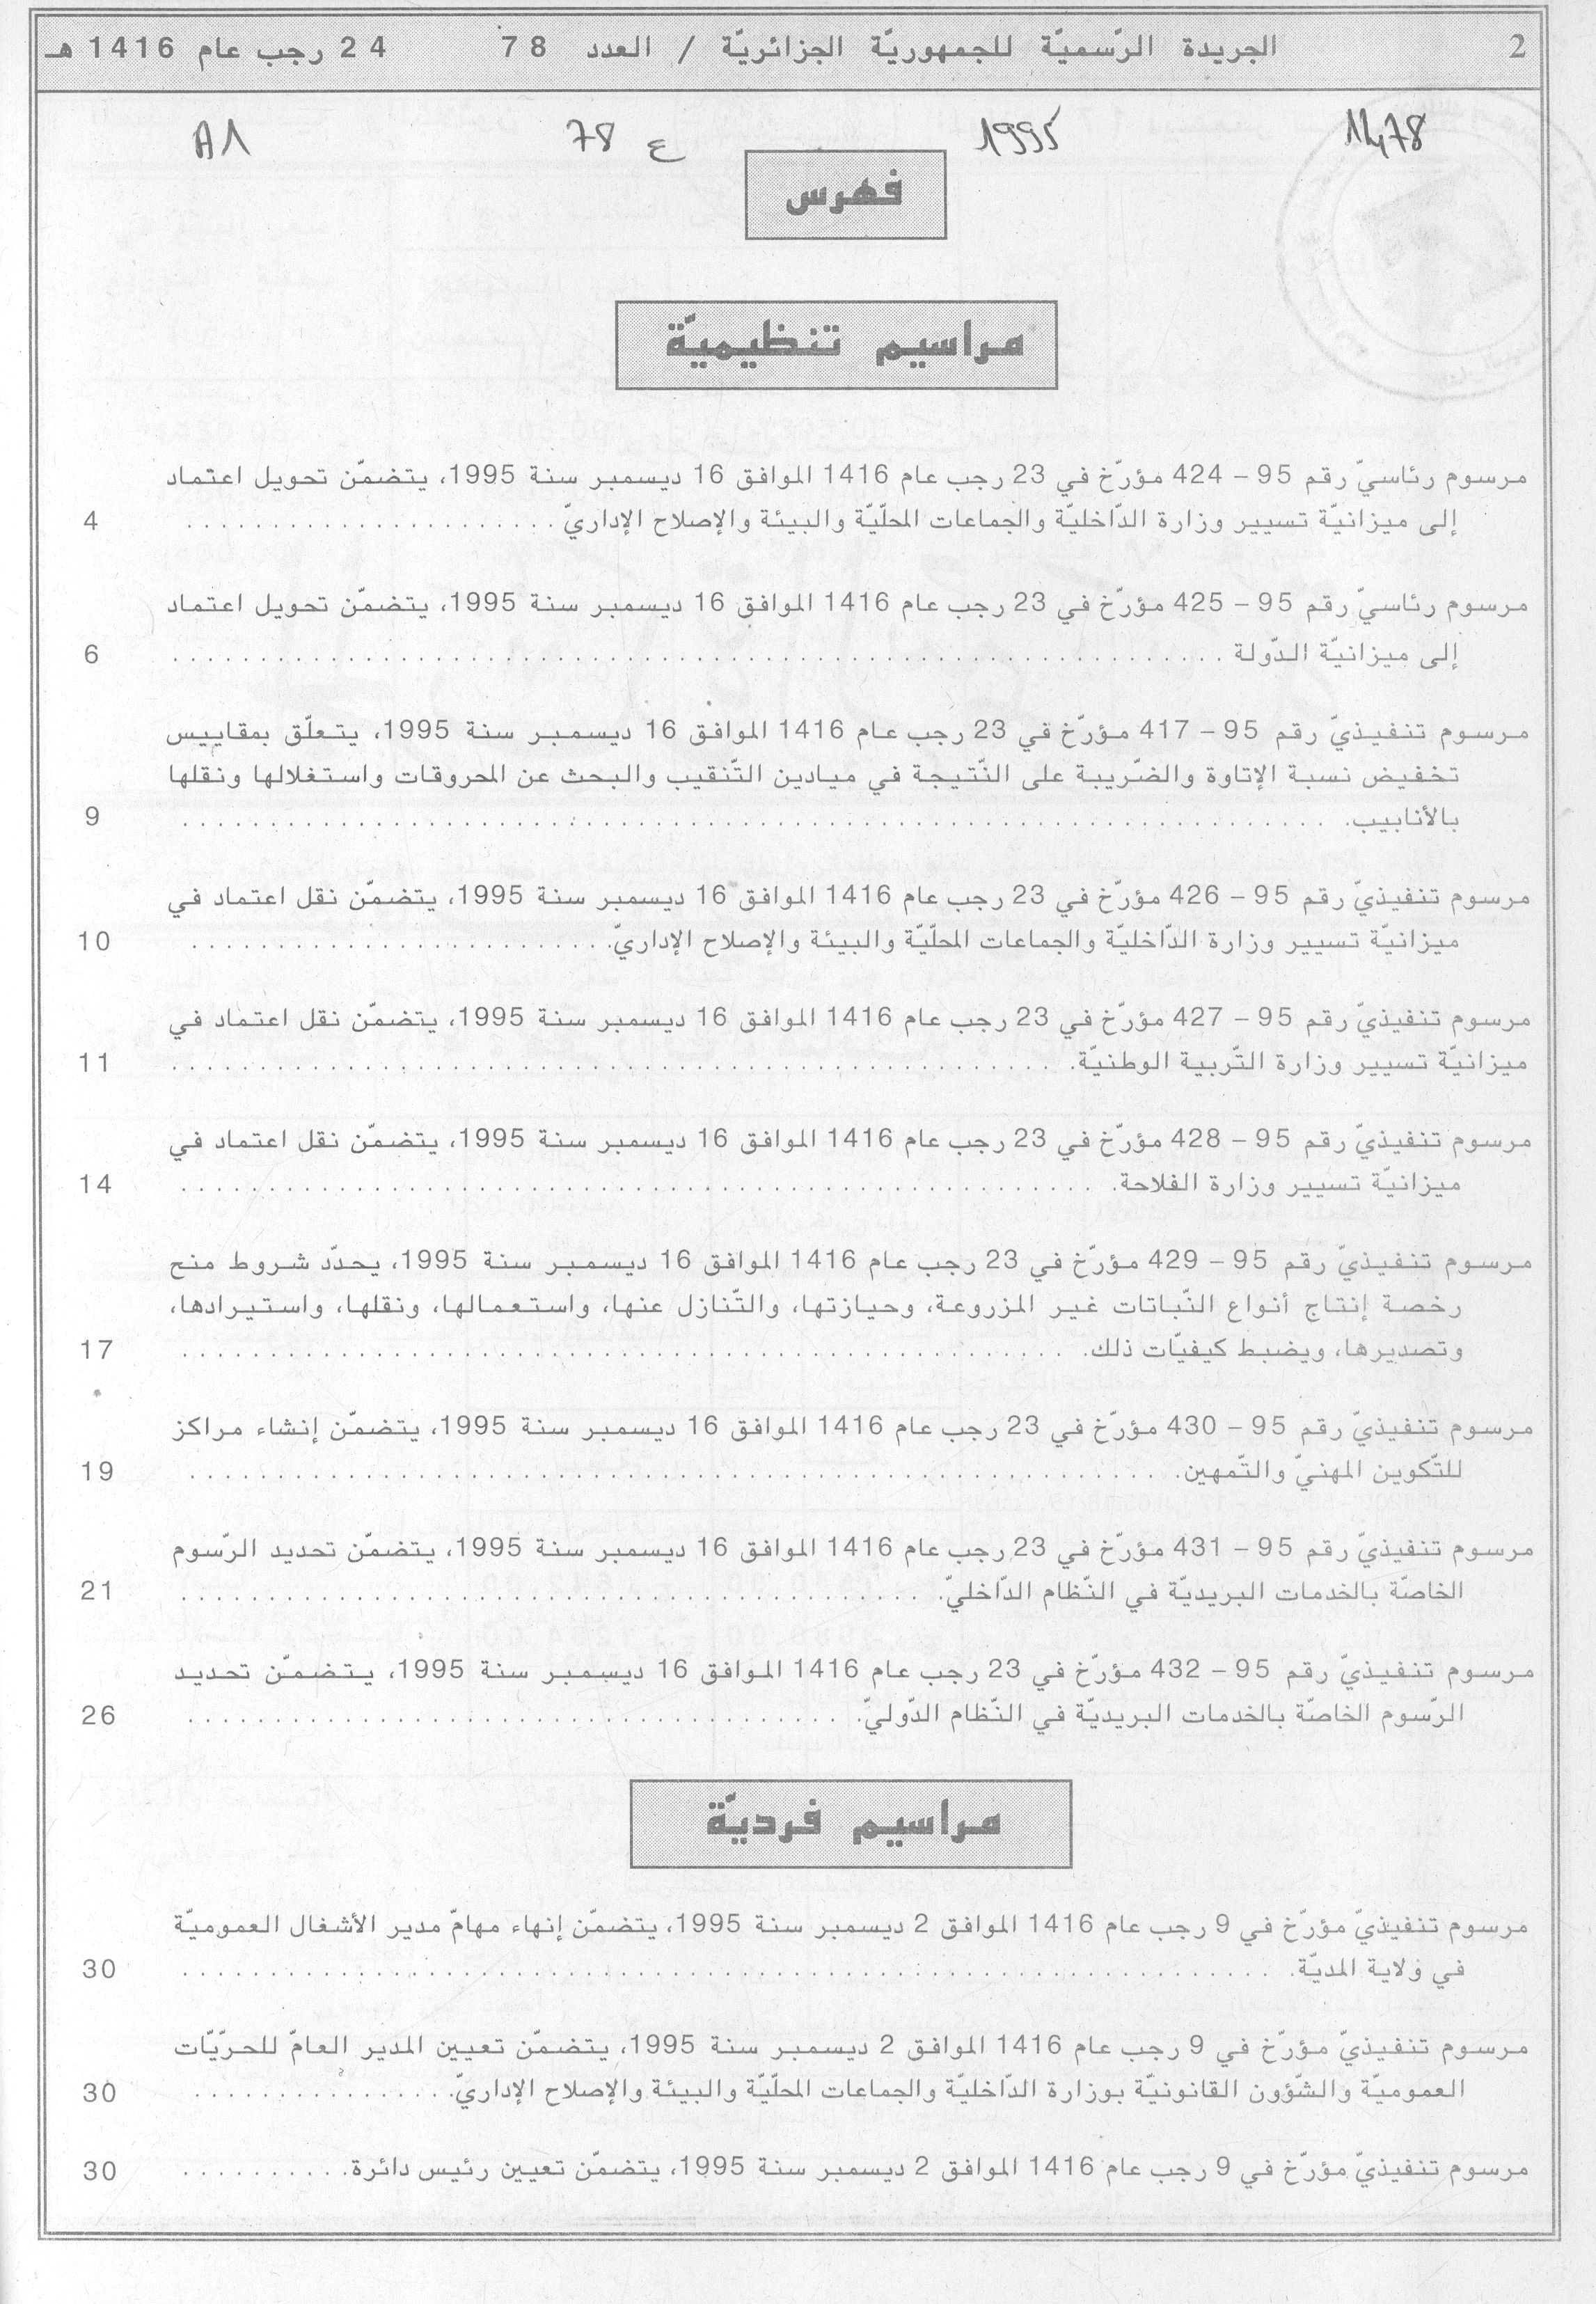 2 الجريدة الرّسميّة للجمهوريّة الجزائريّة / العدد 78 24 رجب عام 1416 هـ
1995 ع 78 A1
فهرس
مراسيم تنظيميّة
مرسوم رئاسيّ رقم 95 – 424 مؤرّخ في 23 رجب عام 1416 الموافق 16 ديسمبر سنة 1995، يتضمّن تحويل اعتماد
إلى ميزانيّة تسيير وزارة الدّاخليّة والجماعات المحلّيّة والبيئة والإصلاح الإداريّ . . . . . . . . . . 4
مرسوم رئاسيّ رقم 95 – 425 مؤرّخ في 23 رجب عام 1416 الموافق 16 ديسمبر سنة 1995، يتضمّن تحويل اعتماد
إلى ميزانيّة الدّولة . . . . . . . . . . 6
مرسوم تنفيذيّ رقم 95 – 417 مؤرّخ في 23 رجب عام 1416 الموافق 16 ديسمبر سنة 1995، يتعلّق بمقاييس
تخفيض نسبة الإتاوة والضّريبة على النّتيجة في ميادين التّنقيب والبحث عن المحروقات واستغلالها ونقلها
بالأنابيب. . . . . . . . . . . 9
مرسوم تنفيذيّ رقم 95 – 426 مؤرّخ في 23 رجب عام 1416 الموافق 16 ديسمبر سنة 1995، يتضمّن نقل اعتماد في
ميزانيّة تسيير وزارة الدّاخليّة والجماعات المحلّيّة والبيئة والإصلاح الإداريّ. . . . . . . . . . . 10
مرسوم تنفيذيّ رقم 95 – 427 مؤرّخ في 23 رجب عام 1416 الموافق 16 ديسمبر سنة 1995، يتضمّن نقل اعتماد في
ميزانيّة تسيير وزارة التّربية الوطنيّة. . . . . . . . . . . 11
مرسوم تنفيذيّ رقم 95 – 428 مؤرّخ في 23 رجب عام 1416 الموافق 16 ديسمبر سنة 1995، يتضمّن نقل اعتماد في
ميزانيّة تسيير وزارة الفلاحة. . . . . . . . . . . 14
مرسوم تنفيذيّ رقم 95 – 429 مؤرّخ في 23 رجب عام 1416 الموافق 16 ديسمبر سنة 1995، يحدّد شروط منح
رخصة إنتاج أنواع النّباتات غير المزروعة، وحيازتها، والتّنازل عنها، واستعمالها، ونقلها، واستيرادها،
وتصديرها، ويضبط كيفيّات ذلك. . . . . . . . . . . 17
مرسوم تنفيذيّ رقم 95 – 430 مؤرّخ في 23 رجب عام 1416 الموافق 16 ديسمبر سنة 1995، يتضمّن إنشاء مراكز
للتّكوين المهنيّ والتّمهين. . . . . . . . . . . 19
مرسوم تنفيذيّ رقم 95 – 431 مؤرّخ في 23 رجب عام 1416 الموافق 16 ديسمبر سنة 1995، يتضمّن تحديد الرّسوم
الخاصّة بالخدمات البريديّة في النّظام الدّاخليّ. . . . . . . . . . . 21
مرسوم تنفيذيّ رقم 95 – 432 مؤرّخ في 23 رجب عام 1416 الموافق 16 ديسمبر سنة 1995، يتضمّن تحديد
الرّسوم الخاصّة بالخدمات البريديّة في النّظام الدّوليّ. . . . . . . . . . . 26
مراسيم فرديّة
مرسوم تنفيذيّ مؤرّخ في 9 رجب عام 1416 الموافق 2 ديسمبر سنة 1995، يتضمّن إنهاء مهامّ مدير الأشغال العموميّة
في ولاية المديّة. . . . . . . . . . . 30
مرسوم تنفيذيّ مؤرّخ في 9 رجب عام 1416 الموافق 2 ديسمبر سنة 1995، يتضمّن تعيين المدير العامّ للحرّيّات
العموميّة والشّؤون القانونيّة بوزارة الدّاخليّة والجماعات المحلّيّة والبيئة والإصلاح الإداريّ. . . . . . . . . . . 30
مرسوم تنفيذيّ مؤرّخ في 9 رجب عام 1416 الموافق 2 ديسمبر سنة 1995، يتضمّن تعيين رئيس دائرة. . . . . . . . . . . 30